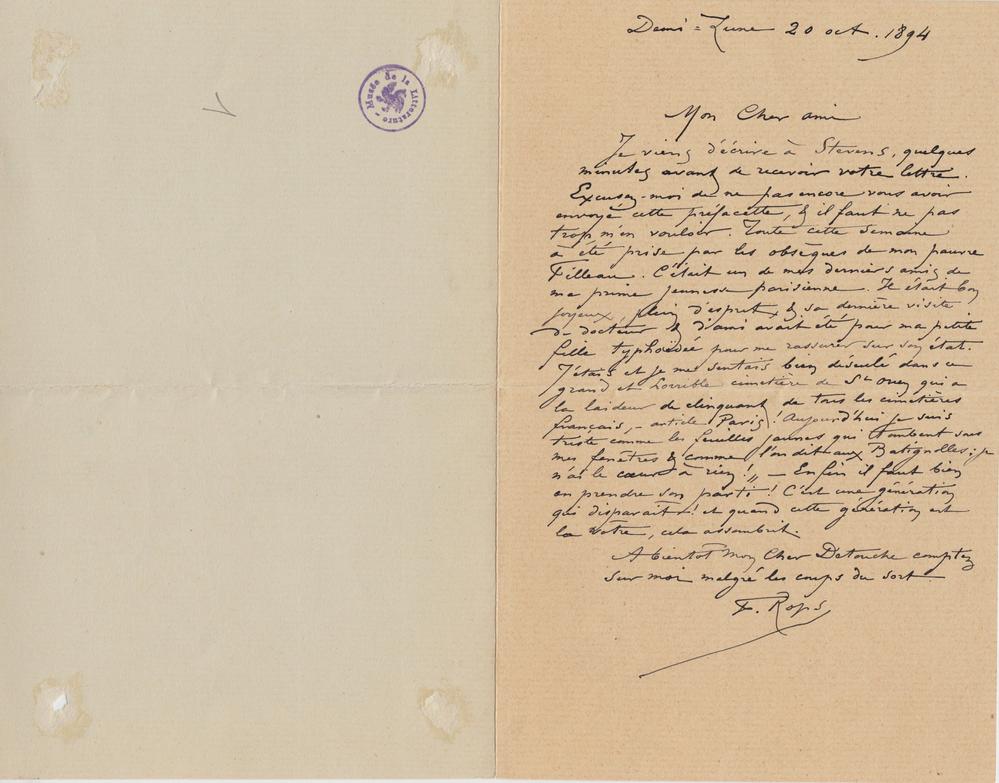 Musée de la Littérature
Demi=Lune 20 oct. 1894
Mon Cher ami
Je viens d'écrire à Stevens, quelques
minutes avant de recevoir votre lettre.
Excusez-moi de ne pas encore vous avoir
envoyé cette préfacette, & il faut ne pas
trop m'en vouloir. Toute cette semaine
a été prise par les obsèques de mon pauvre
Filleau. C'était un de mes derniers amis de
ma prime jeunesse parisienne. Il était bon
joyeux, plein d'esprit, & sa dernière visite
de docteur & d'ami avait été pour ma petite
fille typhoïdée pour me rassurer sur son état.
J'étais et je me sentais bien désolé dans ce
grand et horrible cimetière de St Ouen qui a
la laideur de clinquant de tous les cimetières
français, - article Paris! Aujourd'hui je suis
triste comme les feuilles jaunes qui tombent sous
mes fenêtres & comme l'on dit aux Batignolles; je
n'ai le cœur à rien! „ — Enfin il faut bien
en prendre son parti! C'est une génération
qui disparait! et quand cette génération est
la vôtre, cela assombrit.
A bientot Mon Cher Detouche comptez
sur moi malgré les coups du sort.
F. Rops